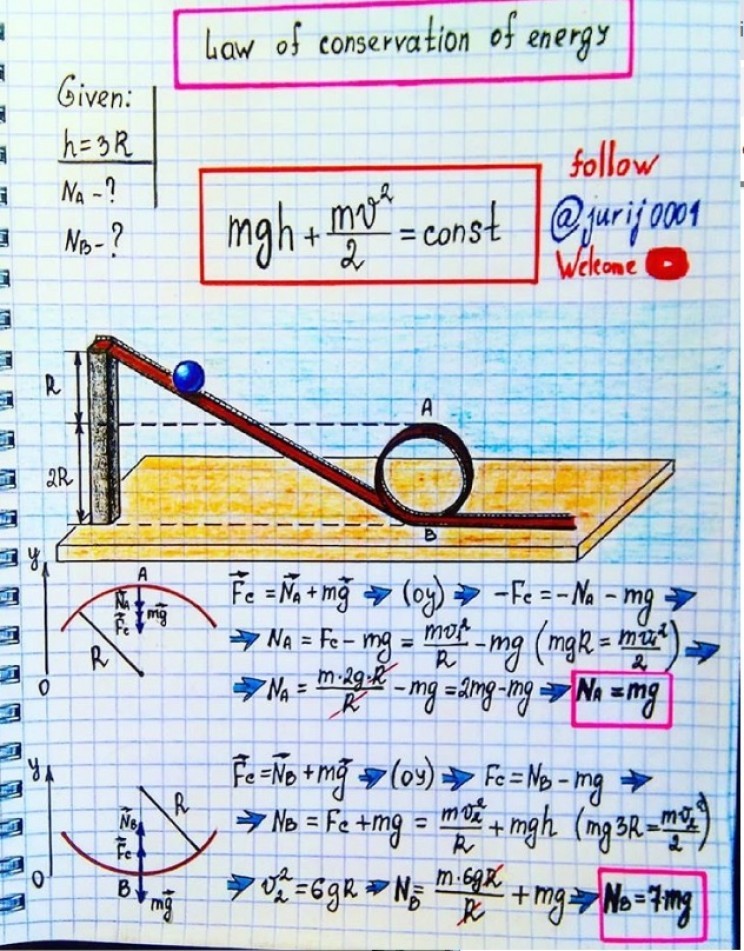 Law of conservation of energy
Given:
h=3R
N_A - ?
N_B - ?
mgh + mv²/2 = const
follow
@jurij0001
Welcome
R
2R
A
B
y
A
N⃗_A
mg⃗
F⃗c
R
0
F⃗c = N⃗_A + mg⃗ ➡ (oy) ➡ -Fc = -N_A - mg ➡
➡ N_A = Fc - mg = mv₁²/R - mg (mgR = mv₁²/2) ➡
➡ N_A = m·2g·R/R - mg = 2mg - mg ➡ N_A = mg
y
R
N⃗_B
F⃗c
0
B
mg⃗
F⃗c = N⃗_B + mg⃗ ➡ (oy) ➡ Fc = N_B - mg ➡
➡ N_B = Fc + mg = mv₂²/R + mgh (mg3R = mv₂²/2)
➡ v₂² = 6gR ➡ N_B = m·6gR/R + mg ➡ N_B = 7mg